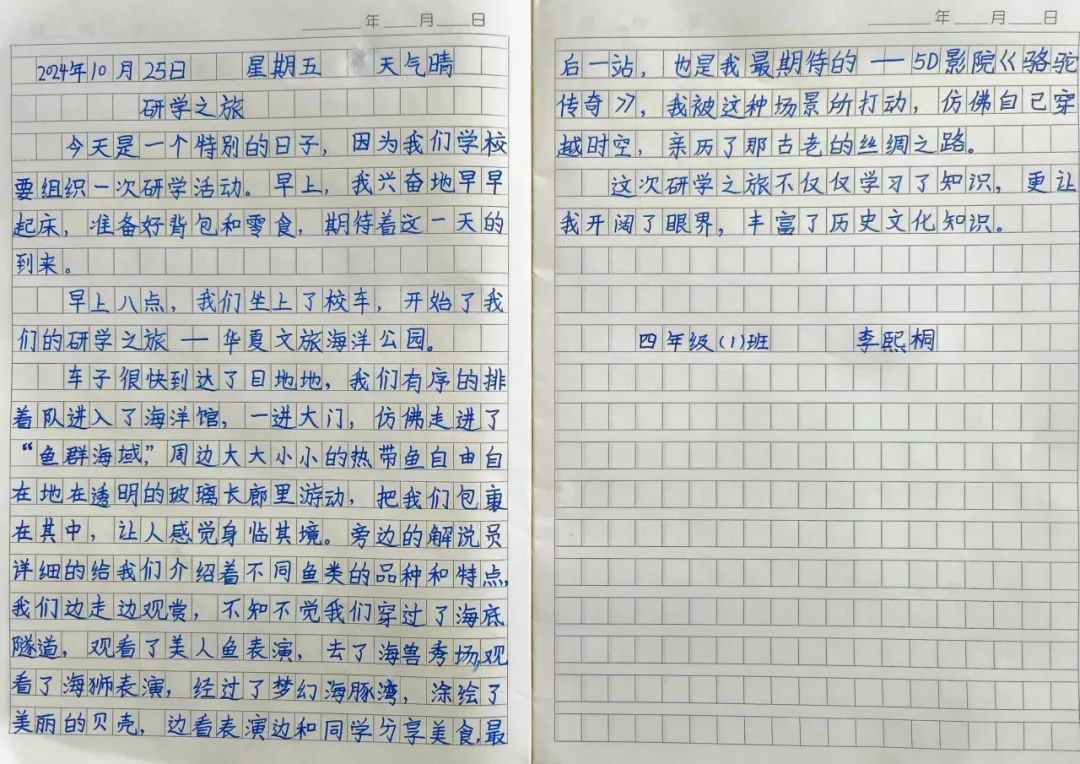 年 月 日
2024年10月25日 星期五 天气晴
研学之旅
今天是一个特别的日子，因为我们学校
要组织一次研学活动。早上，我兴奋地早早
起床，准备好背包和零食，期待着这一天的
到来。
早上八点，我们坐上了校车，开始了我
们的研学之旅 — 华夏文旅海洋公园。
车子很快到达了目地地，我们有序的排
着队进入了海洋馆，一进大门，仿佛走进了
“鱼群海域，”周边大大小小的热带鱼自由自
在地在透明的玻璃长廊里游动，把我们包裹
在其中，让人感觉身临其境。旁边的解说员
详细的给我们介绍着不同鱼类的品种和特点，
我们边走边观赏，不知不觉我们穿过了海底
隧道，观看了美人鱼表演，去了海兽秀场，观
看了海狮表演，经过了梦幻海豚湾，涂绘了
美丽的贝壳，边看表演边和同学分享美食，最
年 月 日
后一站，也是我最期待的 — 5D影院《骆驼
传奇》，我被这种场景所打动，仿佛自己穿
越时空，亲历了那古老的丝绸之路。
这次研学之旅不仅仅学习了知识，更让
我开阔了眼界，丰富了历史文化知识。
四年级(1)班 李熙桐